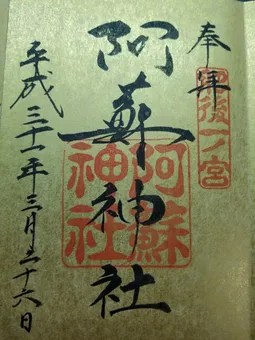 奉拝
肥後一ノ宮
阿蘇神社
阿蘇
神社
平成三十一年三月二十六日